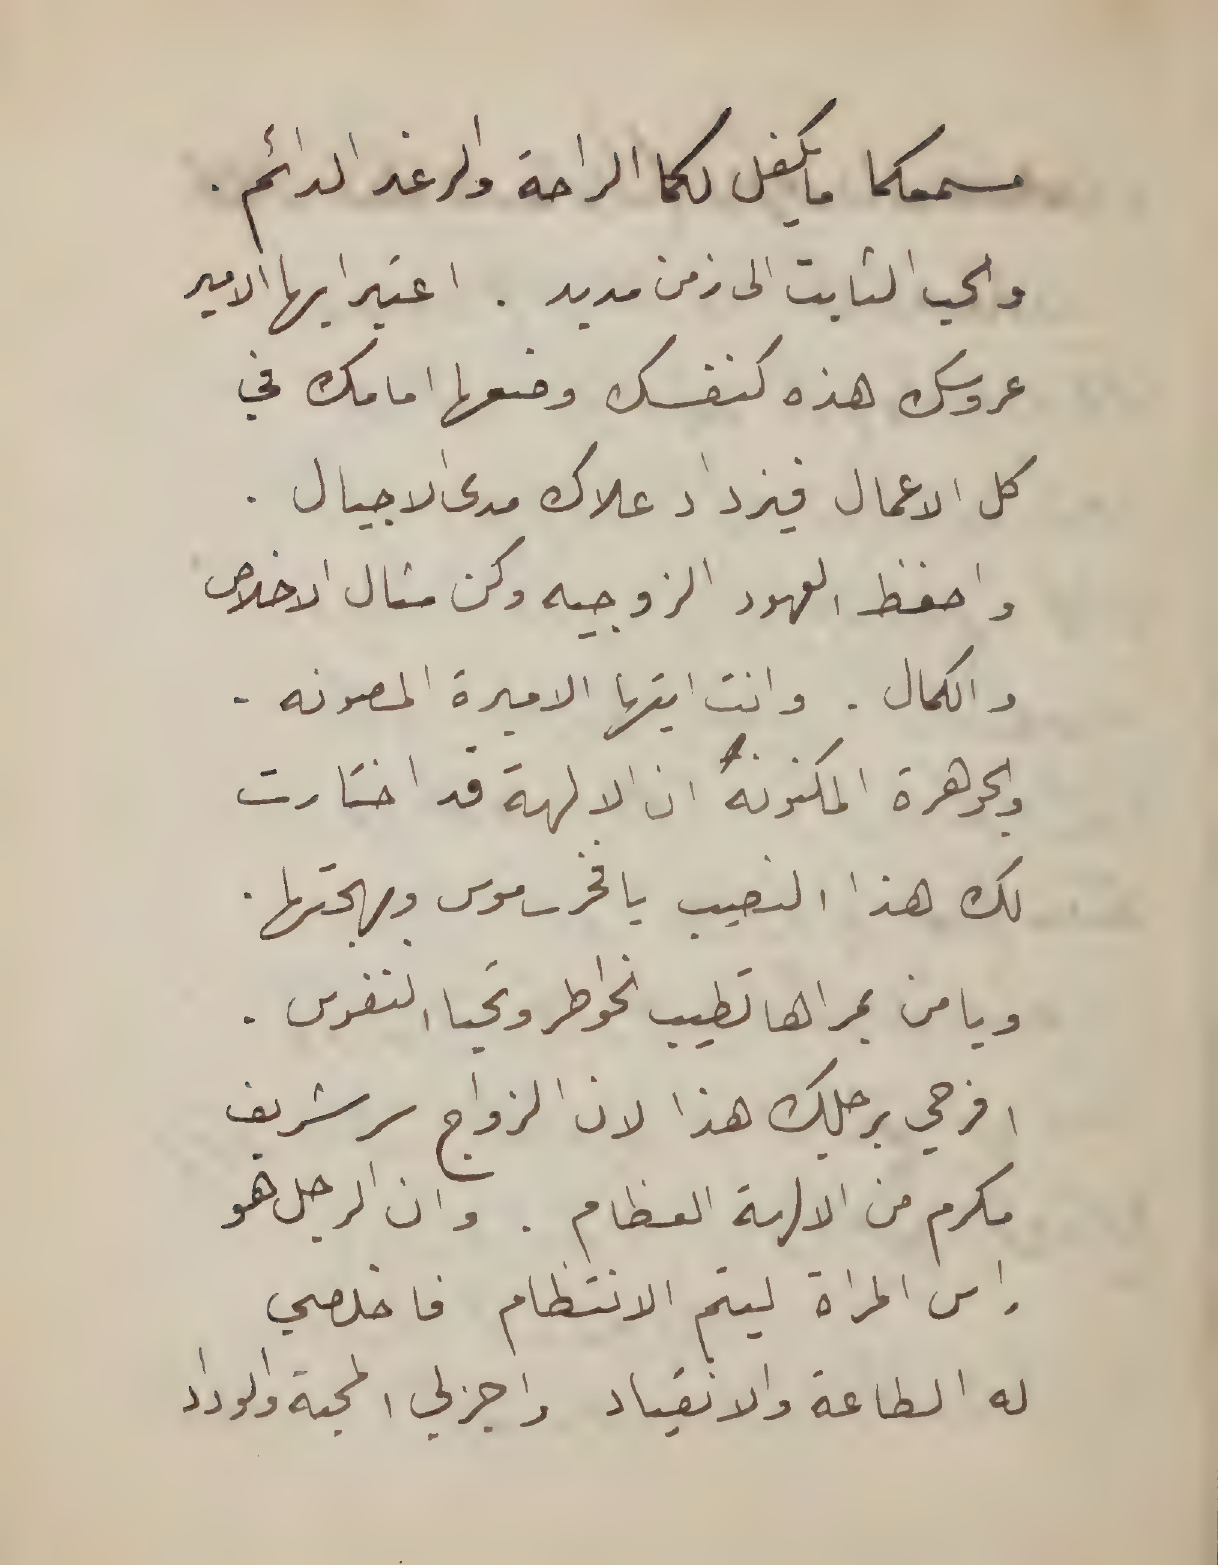 مسمعكما ما يكفل لكما الراحة والرغد الدائم .
والحب الثابت الى زمن مديد . اعتبر ايها الامير
عروسك هذه كنفسك وضعها امامك في
كل الاعمال فيزداد علاك مدى الاجيال .
واحفظ العهود الزوجيه وكن مثال الاخلاص
والكمال . وانت ايتها الاميرة المصونه .
والجوهرة المكنونة ان الالهة قد اختارت
لك هذا النصيب يا فخر ساموس وبهجتها .
ويا من بمراها تطيب الخواطر وتحيا النفوس .
افرحي برجلك هذا لان الزواج سر شريف
مكرم من الالهة العظام . وان الرجل هو
راس المراة ليتم الانتظام فاخلصي
له الطاعة والانقياد واجزلي المحبة والوداد